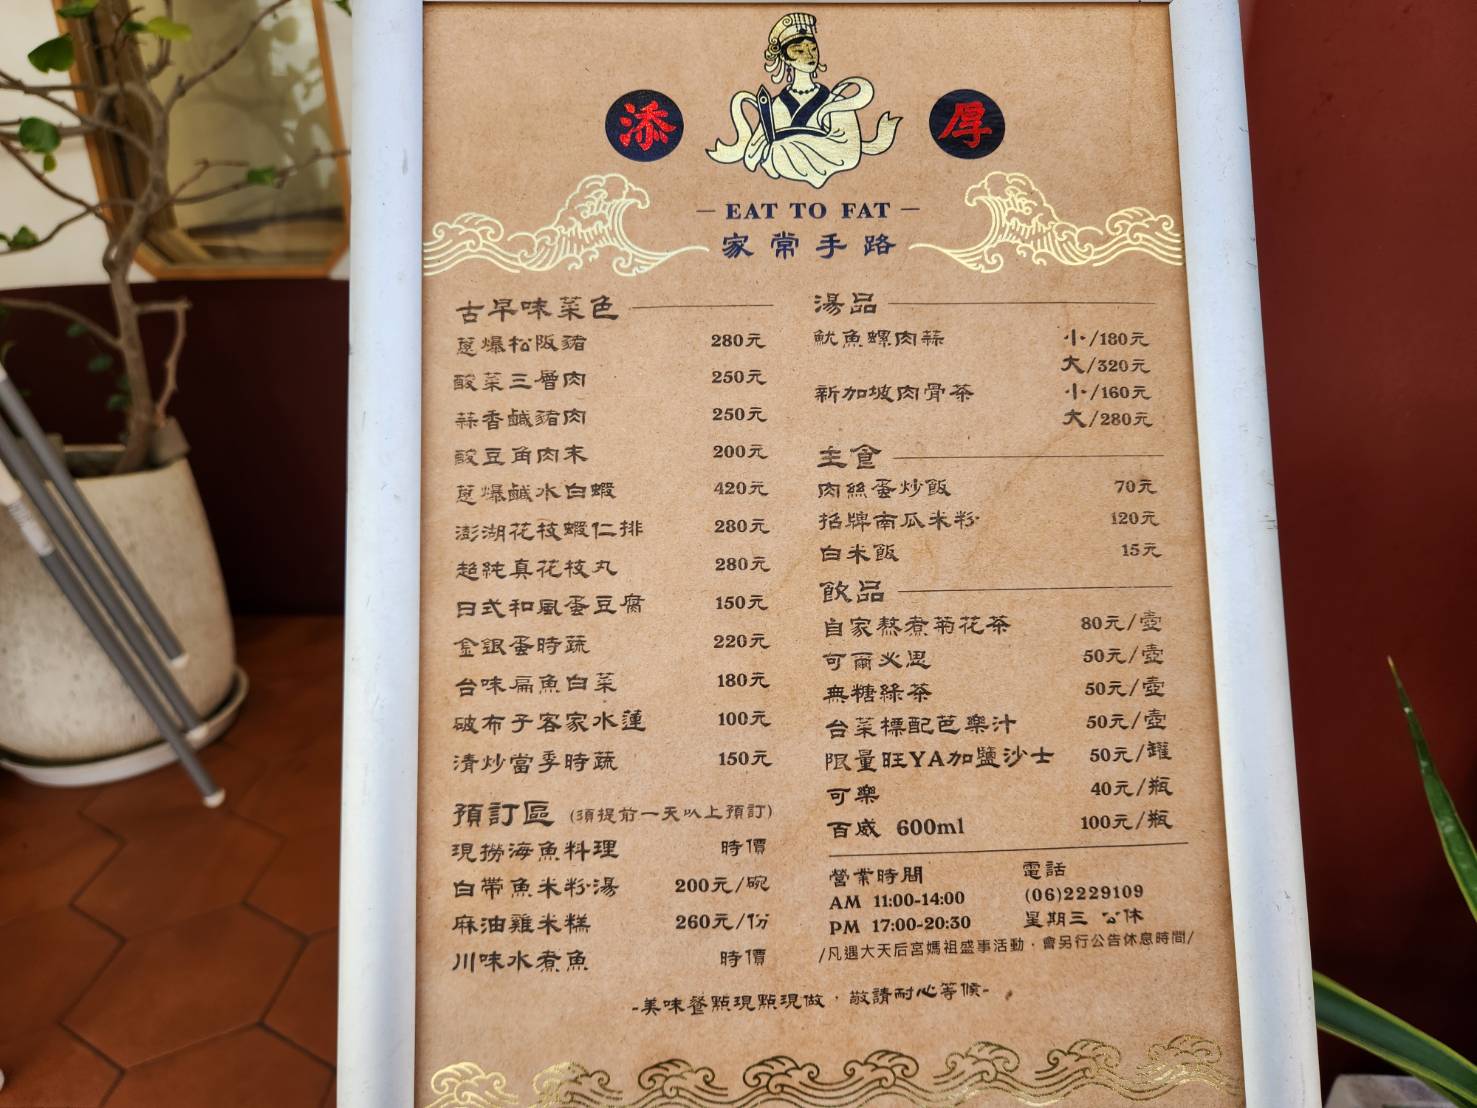 添 厚
EAT TO FAT
家常手路
古早味菜色
蔥爆松阪豬 280元
酸菜三層肉 250元
蒜香鹹豬肉 250元
酸豆角肉末 200元
蔥爆鹹水白蝦 420元
澎湖花枝蝦仁排 280元
超純真花枝丸 280元
日式和風蛋豆腐 150元
金銀蛋時蔬 220元
台味扁魚白菜 180元
破布子客家水蓮 100元
清炒當季時蔬 150元
預訂區 (須提前一天以上預訂)
現撈海魚料理 時價
白帶魚米粉湯 200元/碗
麻油雞米糕 260元/份
川味水煮魚 時價
湯品
魷魚螺肉蒜 小/180元
大/320元
新加坡肉骨茶 小/160元
大/280元
主食
肉絲蛋炒飯 70元
招牌南瓜米粉 120元
白米飯 15元
飲品
自家熬煮菊花茶 80元/壺
可爾必思 50元/壺
無糖綠茶 50元/壺
台菜標配芭樂汁 50元/壺
限量旺YA加鹽沙士 50元/罐
可樂 40元/瓶
百威 600ml 100元/瓶
營業時間
AM 11:00-14:00
PM 17:00-20:30
電話
(06)2229109
星期三 公休
/凡遇大天后宮媽祖盛事活動，會另行公告休息時間/
-美味餐點現點現做，敬請耐心等候-